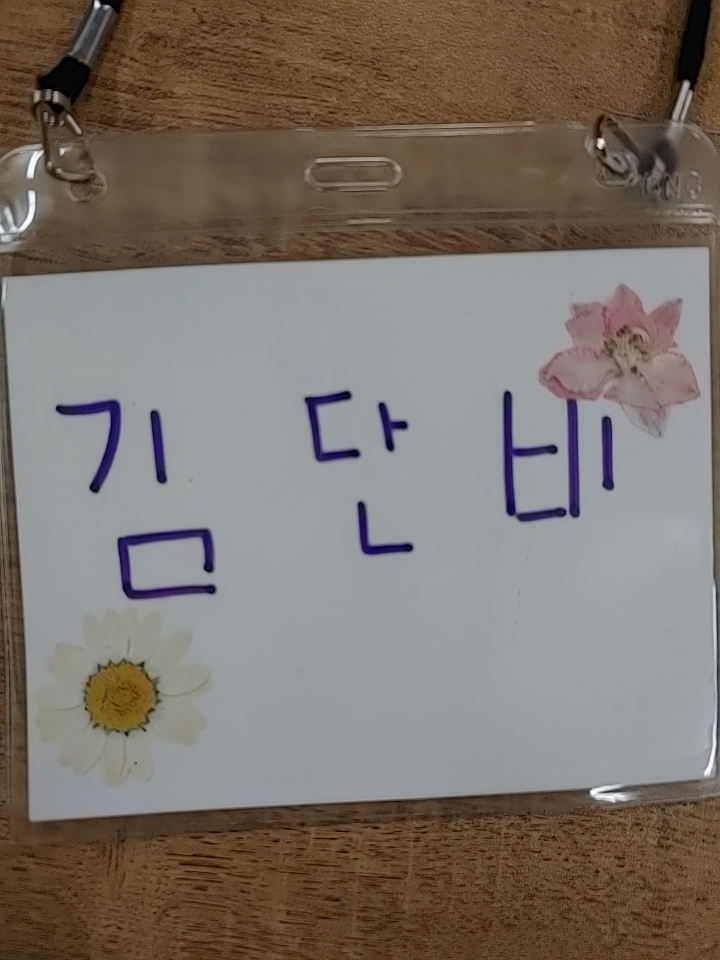 김 단 비